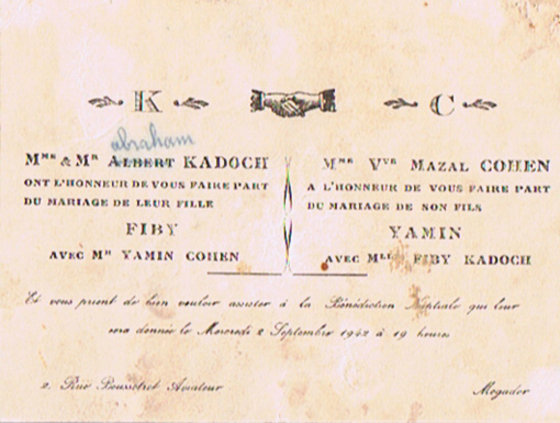 K
C
abraham
Mme & Mr Albert KADOCH
ONT L'HONNEUR DE VOUS FAIRE PART
DU MARIAGE DE LEUR FILLE
FIBY
AVEC Mr YAMIN COHEN
Mme Vve Mazal COHEN
A L'HONNEUR DE VOUS FAIRE PART
DU MARIAGE DE SON FILS
YAMIN
AVEC Mlle FIBY KADOCH
Et vous prient de bien vouloir assister à la Bénédiction Nuptiale qui leur
sera donnée le Mercredi 2 Septembre 1942 à 19 heures
2. Rue Boussotrot Aviateur
Mogador